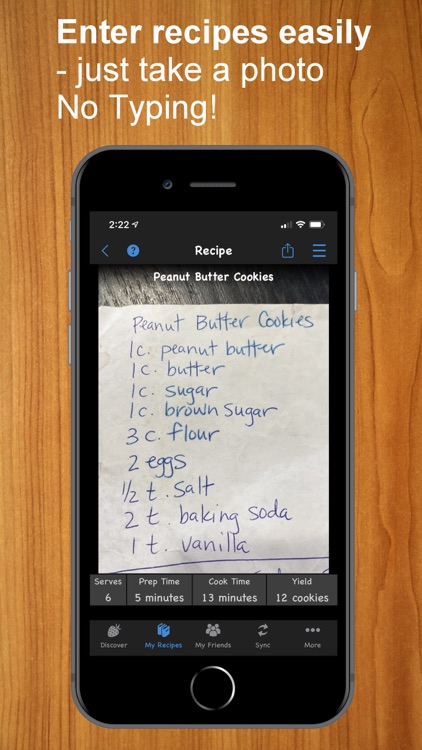 Enter recipes easily
- just take a photo
No Typing!
2:22
Recipe
Peanut Butter Cookies
Peanut Butter Cookies
1c. peanut butter
1c. butter
1c. sugar
1c. brown sugar
3 c. flour
2 eggs
1/2 t. salt
2 t. baking soda
1 t. vanilla
Serves Prep Time Cook Time Yield
6 5 minutes 13 minutes 12 cookies
Discover My Recipes My Friends Sync More